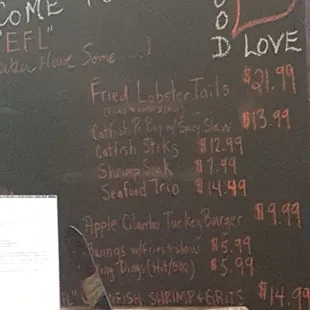 COME
"EFL"
Better Have Some ...!
OOD
LOVE
Fried Lobster Tails $21.99
Catfish Po Boy w/ Spicy Slaw $13.99
Catfish Stiks $12.99
Shrimp Stik $7.99
Seafood Trio $14.49
Apple Cilantro Turkey Burger $9.99
w/ Fries & slaw $5.99
Ding Dings (Hot/BBQ) $5.99
SHRIMP & GRITS $14.99